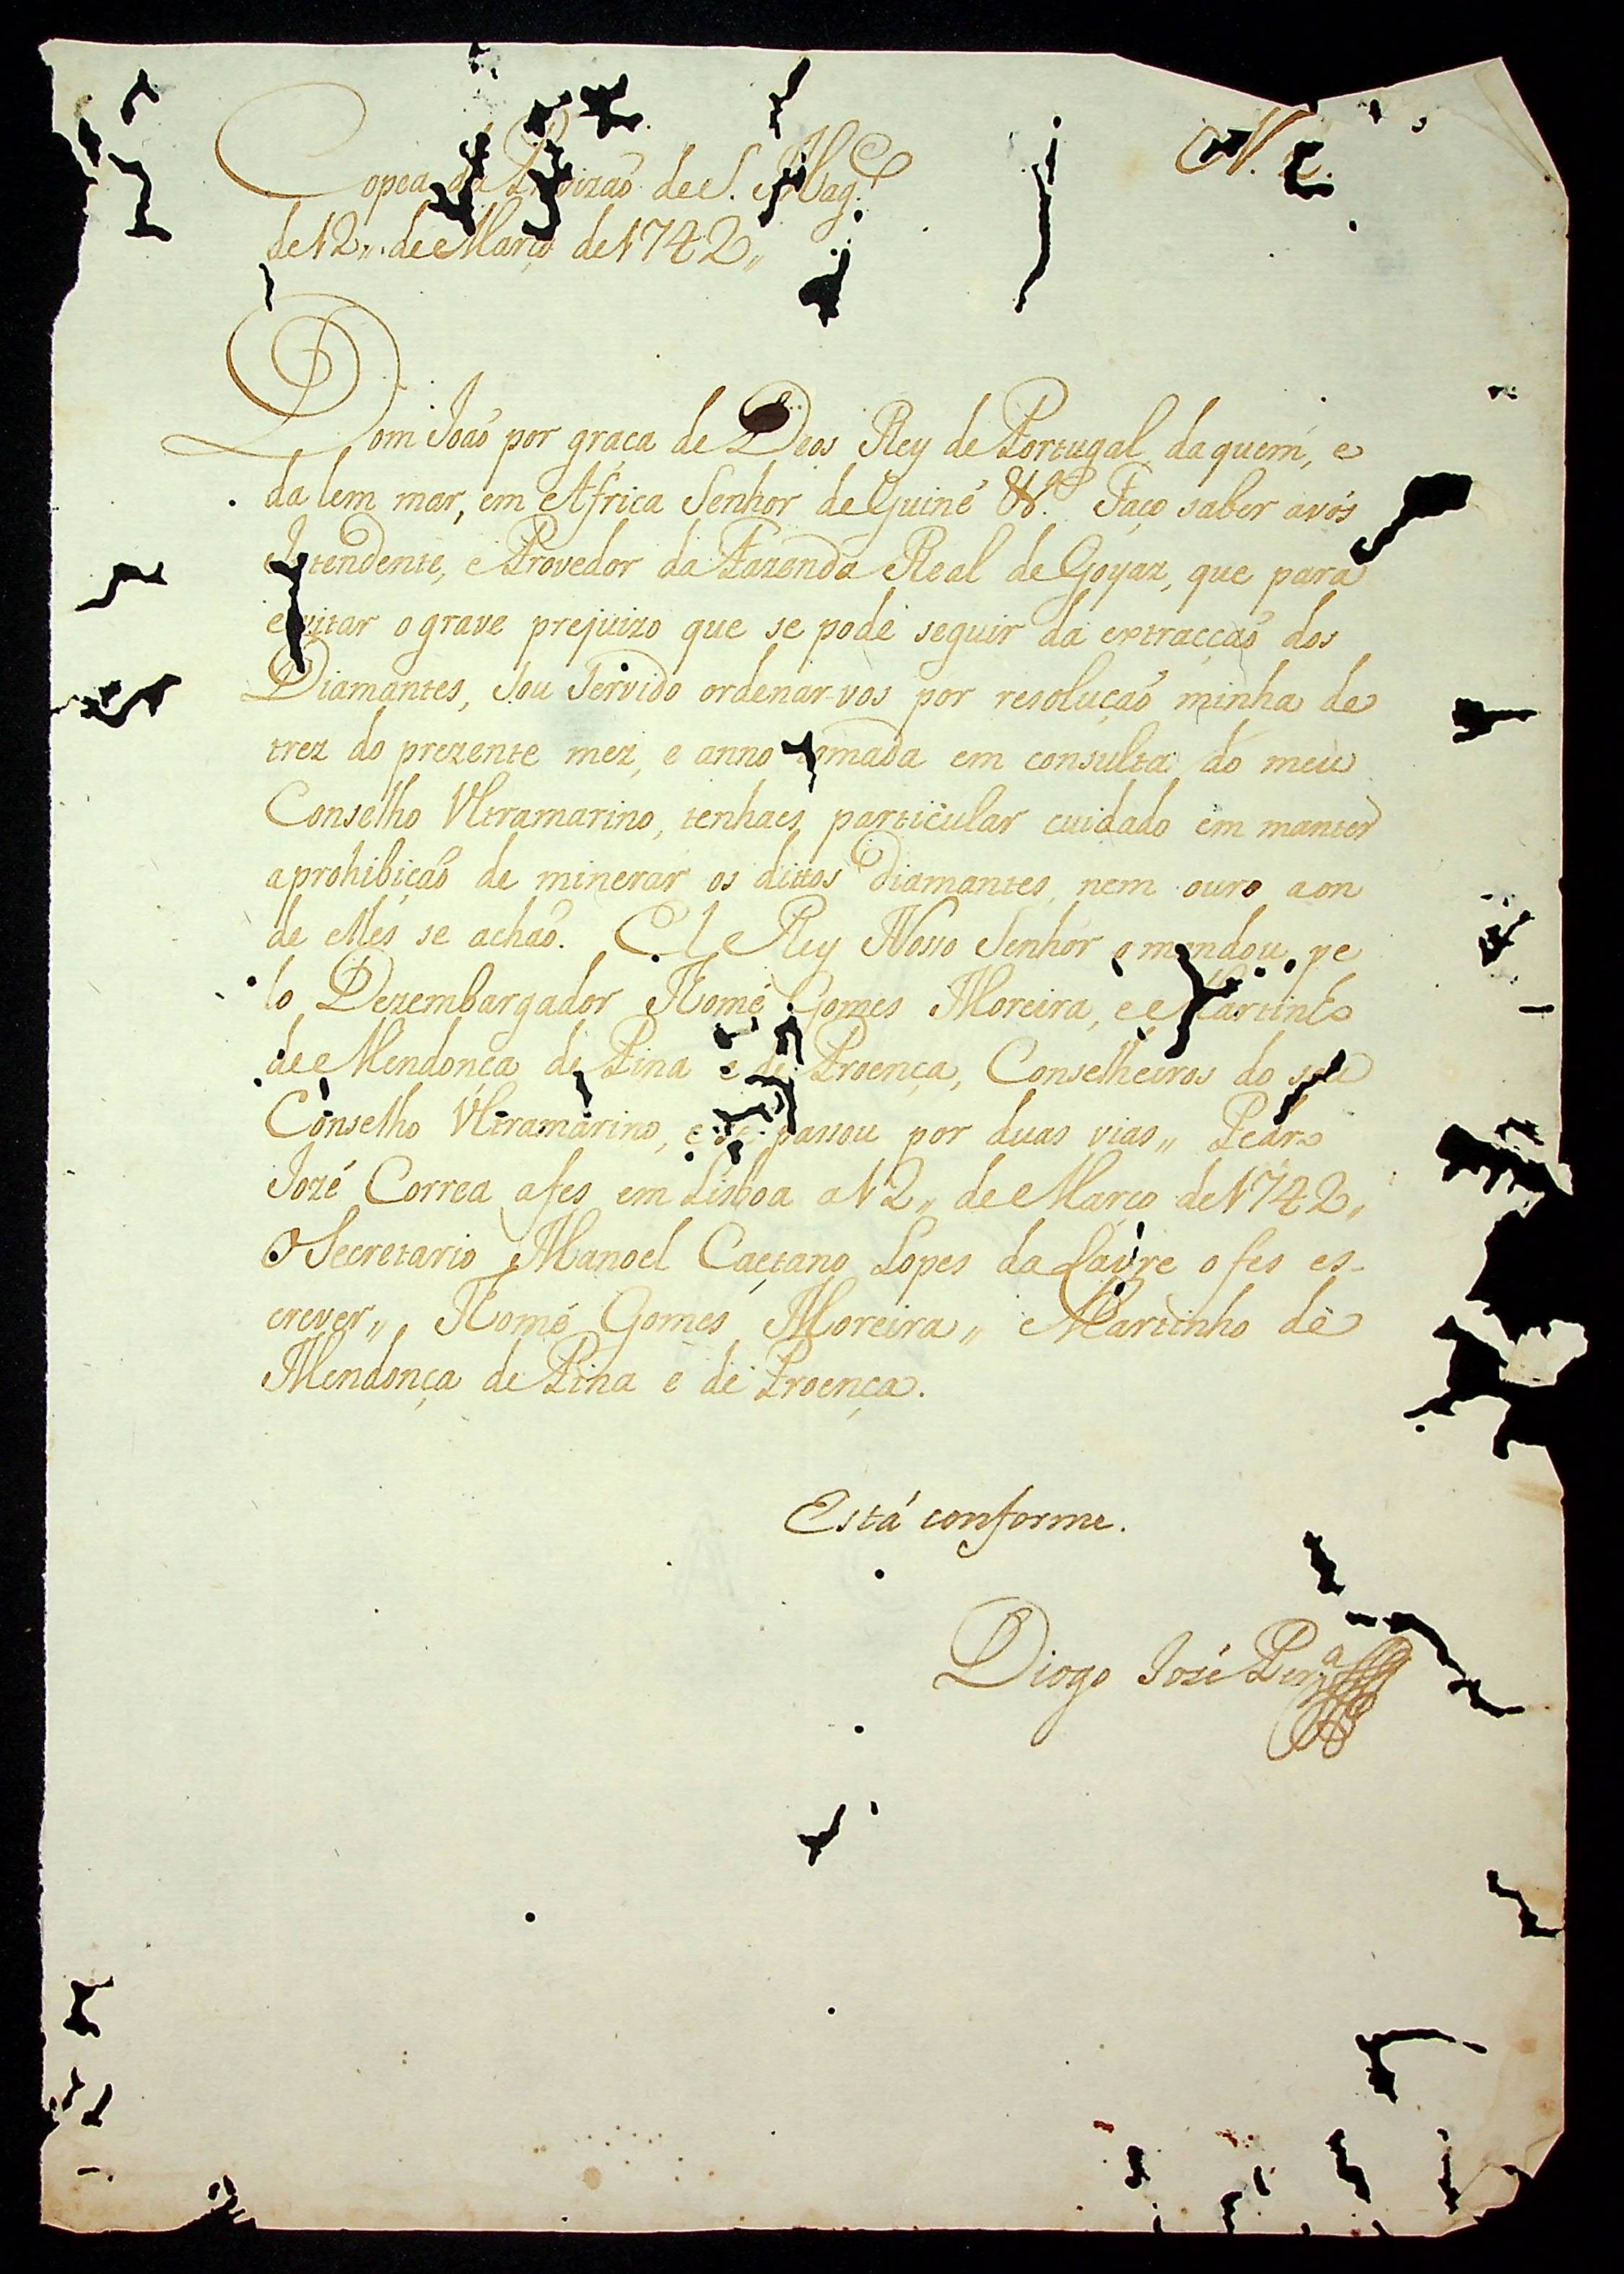 N.
Copea da Provizaõ de S. Mag.de
de 12,, de Março de 1742,,
Dom Joaõ por graça de Deos Rey de Portugal, da quem, e
da lem mar, em Africa Senhor de Guiné &.a Faço saber avós
Intendente, e Provedor da Fazenda Real de Goyaz, que para
evitar o grave prejuizo que se pode seguir da extracçaõ dos
Diamantes, Sou Servido ordenar-vos por resoluçaõ minha de
trez do prezente mez, e anno tomada em consulta do meu
Conselho Ultramarino, tenhaes particular cuidado em manter
a prohibiçaõ de minerar os dittos Diamantes, nem ouro aon
de elles se achaõ. El Rey Nosso Senhor o mandou pe
lo Dezembargador Thomé Gomes Moreira, e Martinho
de Mendonça de Pina e de Proença, Conselheiros do seu
Conselho Ultramarino, e se passou por duas vias,, Pedro
Jozé Correa a fes em Lisboa a 12,, de Março de 1742,,
O Secretario Manoel Caetano Lopes da Lavre o fes es-
crever,, Thomé Gomes Moreira,, Martinho de
Mendonça de Pina e de Proença.
Está conforme.
Diogo José Per.a